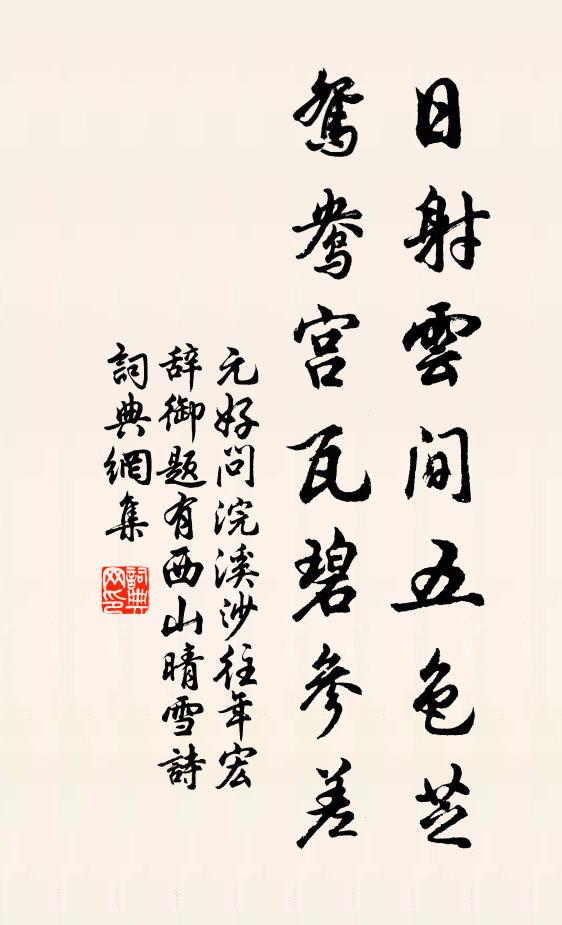 日射雲間五色芝
鴛鴦宮瓦碧參差
元好問浣溪沙往年宏
辞御题有西山晴雪詩
詞典網集
詞典
网印